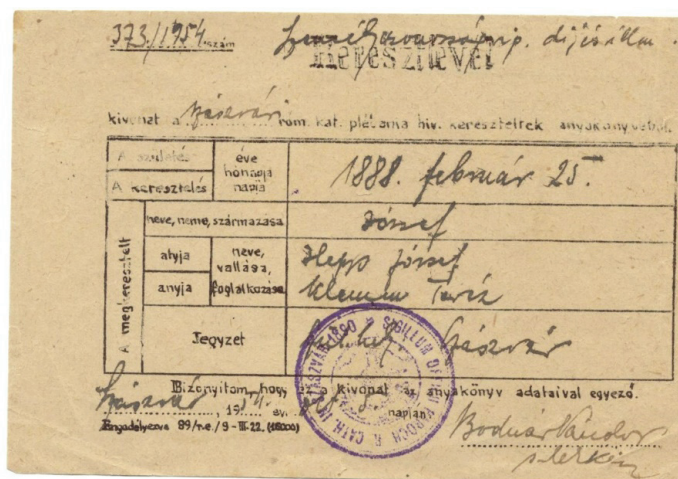 373./1954. szám
Keresztlevél
kivonat a szászvári róm. kat. plébánia hiv. kereszteltek anyakönyvéből.
A születés
A keresztelés
éve
hónapja
napja
1888. február 25.
A megkeresztelt
neve, neme, származása
József
atyja
anyja
neve,
vallása,
foglalkozása
Hepp József
Klemm Teréz
Jegyzet
Szászvár
Bizonyítom, hogy ez a kivonat az anyakönyv adataival egyező.
Szászvár, 1954. év napján
Engedélyezve 89/n.e./9-III.22. (15000)
SIGILLUM OFFICII PAROCH. R. CATH. IN SZÁSZVÁR 1890
Bodnár Nándor